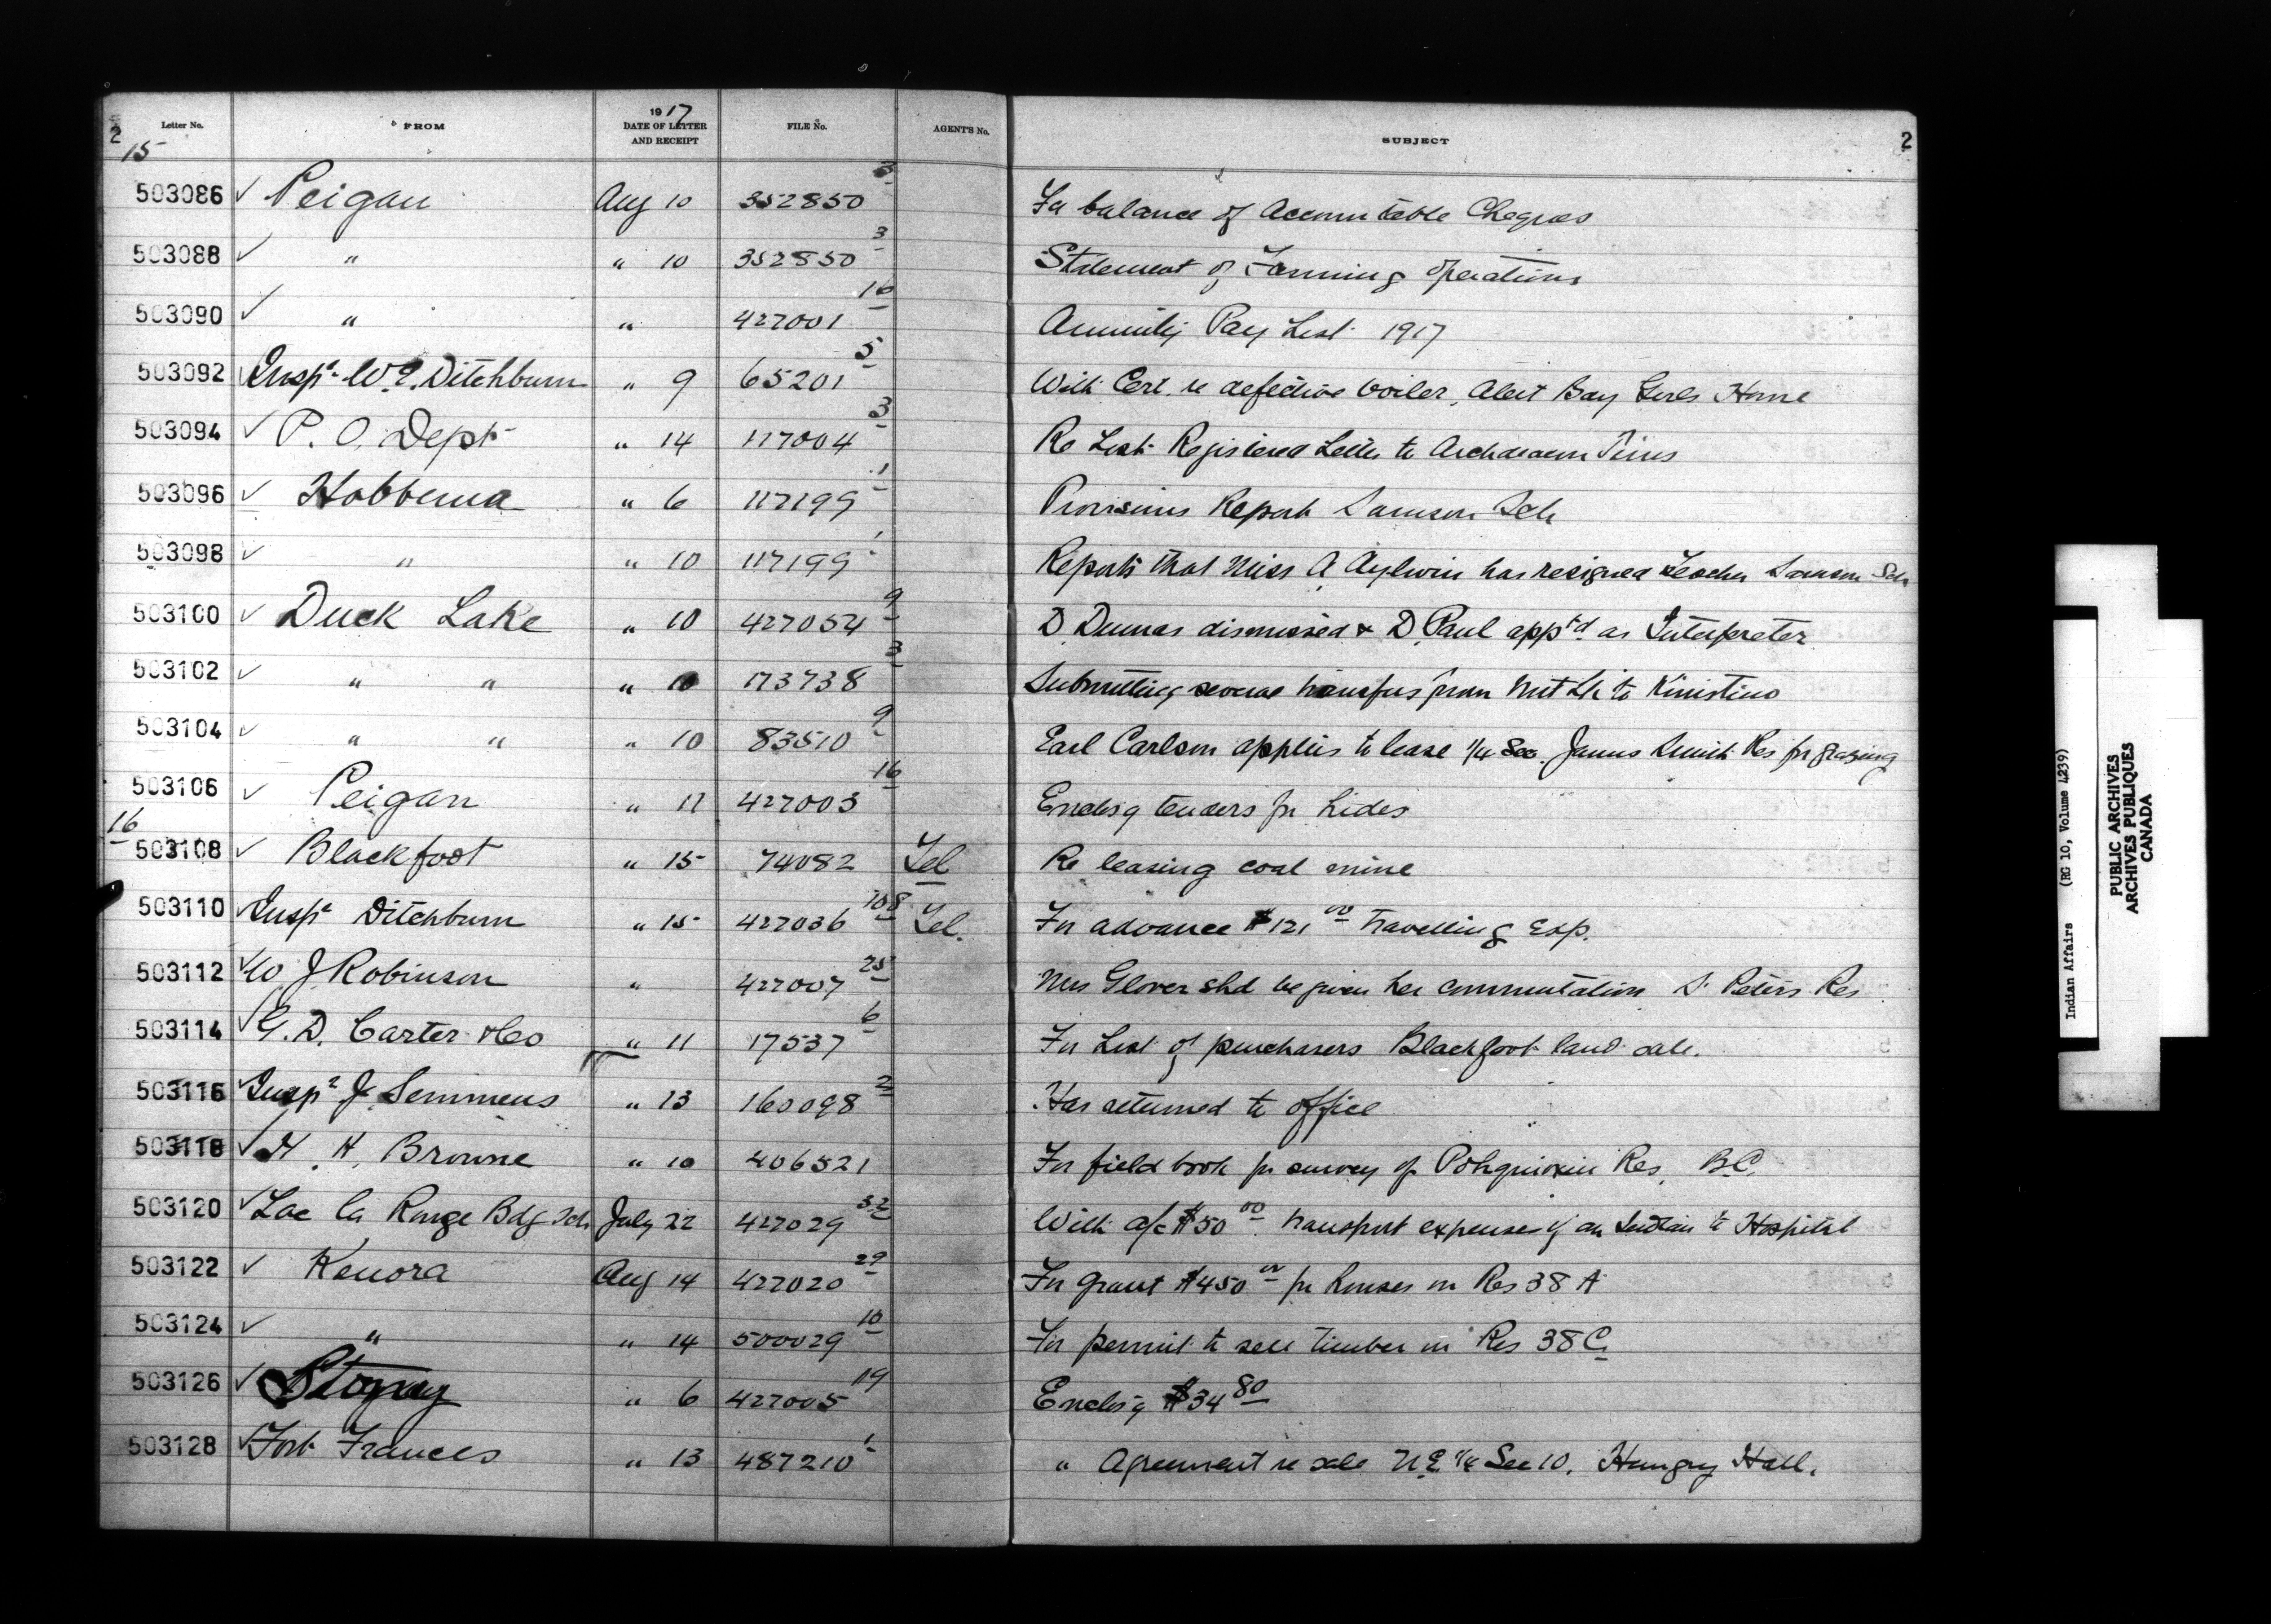 2 Letter No. FROM 1917 DATE OF LETTER AND RECEIPT FILE No. AGENT'S No. SUBJECT 2
15
503086 ✓ Peigan Aug 10 352850 3 For balance of Accountable Cheques
503088 ✓ " " 10 352850 3 Statement of Farming operations
503090 ✓ " " 427001 16 Annuity Pay List 1917
503092 ✓ Inspr W.E. Ditchburn " 9 65201 5 With Cert. re defective boiler, Alert Bay Girls Home
503094 ✓ P. O. Dept " 14 117004 3 Re Lost Registered Letter to Archdeacon
503096 ✓ Hobbema " 6 117199 1 Provisions Report Samson Sch
503098 ✓ " " 10 117199 1 Reports that Miss A Aylwin has resigned teacher Samson Sch
503100 ✓ Duck Lake " 10 427054 9 D Dumas dismissed & D. Paul apptd as Interpreter
503102 ✓ " " " 10 173738 3 Submitting several transfers from Nut Lk to Kinistino
503104 ✓ " " " 10 83510 9 Earl Carlson applies to lease 1/4 Sec. James Smith Res for grazing
503106 ✓ Peigan " 11 427003 16 Enclosg tenders for hides
16
503108 ✓ Blackfoot " 15 74082 Tel Re leasing coal mine
503110 ✓ Inspr Ditchburn " 15 427036 108 Tel. For advance $121 00 travelling Exp.
503112 ✓ W J Robinson " 427007 25 Mrs Glover shd be given her commutation St Peters Res
503114 ✓ G. D. Carter & Co " 11 17537 6 For List of purchasers Blackfoot land sale.
503116 ✓ Inspr J. Semmens " 13 160098 2 Has returned to office
503118 ✓ H. H. Browne " 10 406521 For field book for survey of Res. B.C.
503120 ✓ Lac La Ronge Bdg Sch July 22 427029 32 With a/c $50 00 transport expenses of an Indian to Hospital
503122 ✓ Kenora Aug 14 427020 29 For grant $450 00 for houses on Res 38 A
503124 ✓ " " 14 500029 10 For permit to sell timber on Res 38 C.
503126 ✓ Stoney " 6 427005 19 Enclosg $34 80
503128 ✓ Fort Frances " 13 487210 1 " Agreement re sale N.E. 1/4 Sec 10. Hungry Hall.
Indian Affairs (RG 10, Volume 4239)
PUBLIC ARCHIVES
ARCHIVES PUBLIQUES
CANADA